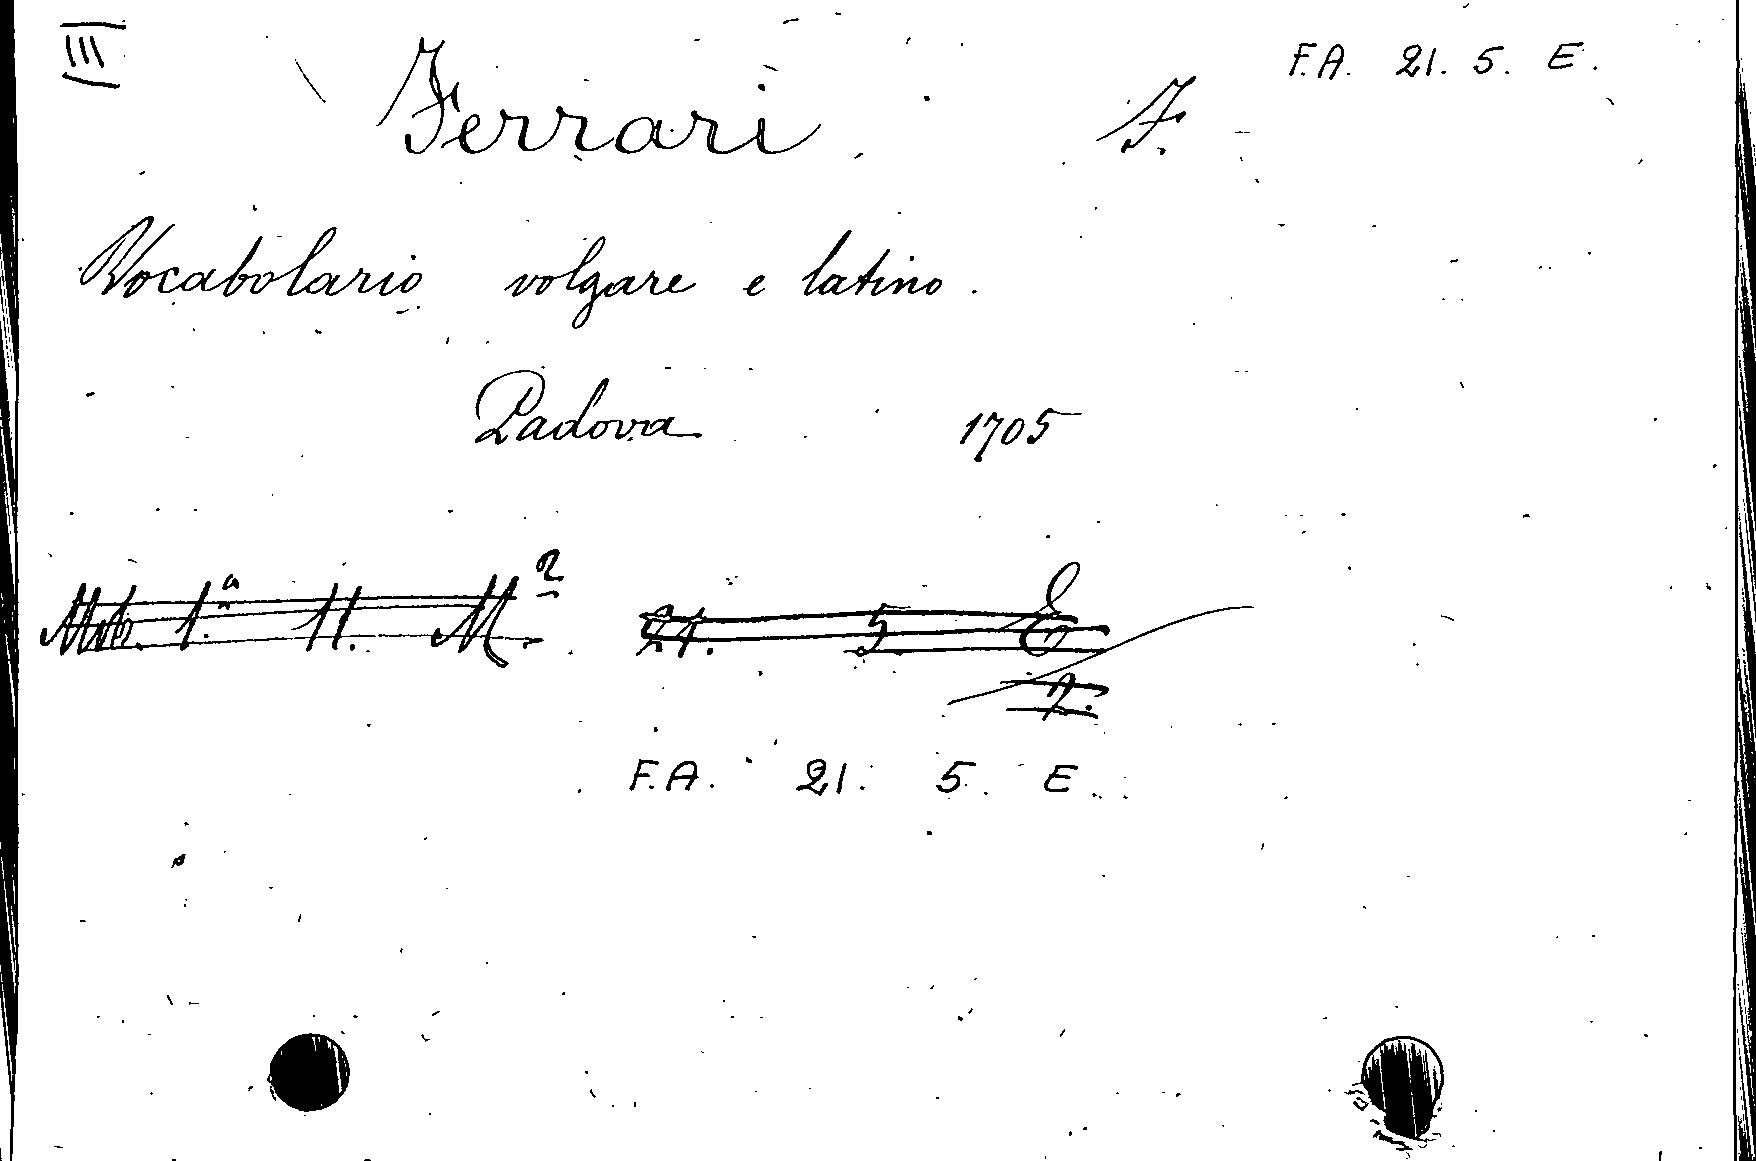 III F.A. 21. 5. E.
Ferrari F.
Vocabolario volgare e latino.
Padova 1705
1.ª 11. M. 2 21. 5. E
2.
F.A. 21. 5. E.